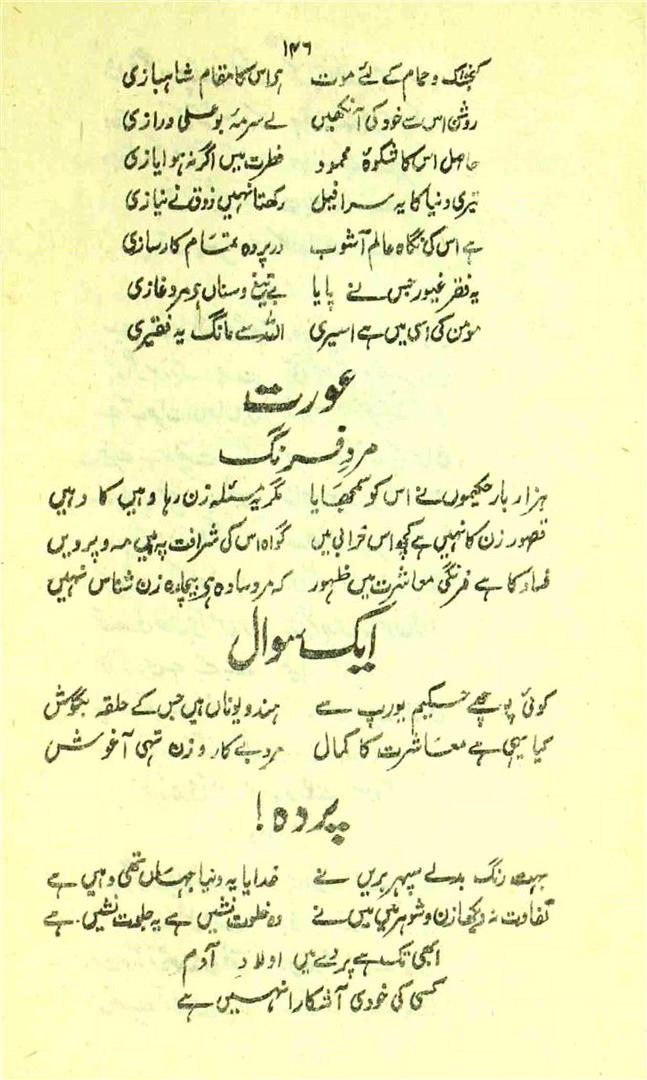 ۱۴۶
کنجشک و حمام کے لئے موت ہے اس کا مقام شاہبازی
روشن اس سے خرد کی آنکھیں بے سرمۂ بوعلی و رازی
حاصل اس کا شکوۂ محمود فطرت میں اگر نہ ہو ایازی
تیری دنیا کا یہ سرافیل رکھتا نہیں ذوق نے نیازی
ہے اس کی نگاہ عالم آشوب درپردہ تمام کارسازی
یہ فقر غیور جس نے پایا بے تیغ و سناں ہے مرد غازی
مومن کی اسی میں ہے اسیری اللہ سے مانگ یہ فقیری
عورت
مردِ فرنگ
ہزار بار حکیموں نے اس کو سمجھایا مگر یہ مسئلہ زن رہا وہیں کا وہیں
قصور زن کا نہیں ہے کچھ اس خرابی میں گواہ اس کی شرافت پہ ہیں مہ و پرویں
فساد کا ہے فرنگی معاشرت میں ظہور کہ مرد سادہ ہے بیچارہ زن شناس نہیں
ایک سوال
کوئی پوچھے حکیم یورپ سے ہند و یوناں ہیں جس کے حلقہ بگوش
کیا یہی ہے معاشرت کا کمال مرد بے کار و زن تہی آغوش
پردہ!
بہت رنگ بدلے سپہر بریں نے خدایا یہ دنیا جہاں تھی وہیں ہے
تفاوت نہ دیکھا زن و شوہر میں میں نے وہ خلوت نشیں ہے یہ جلوت نشیں ہے
ابھی تک ہے پردے میں اولادِ آدم
کسی کی خودی آشکارا نہیں ہے